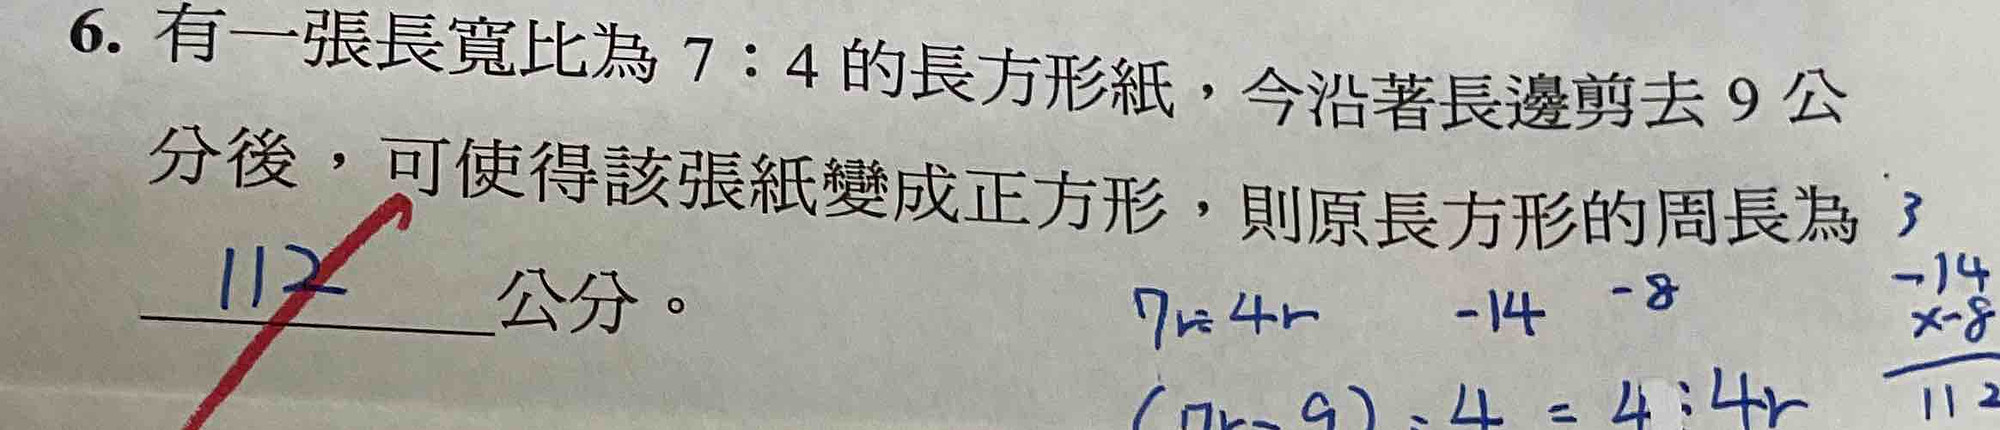 6. 有一張長寬比為 7：4 的長方形紙，今沿著長邊剪去 9 公
分後，可使得該張紙變成正方形，則原長方形的周長為
112 公分。
3
7r=4r -14 -8
-14
x-8
112
(7r-9):4=4:4r